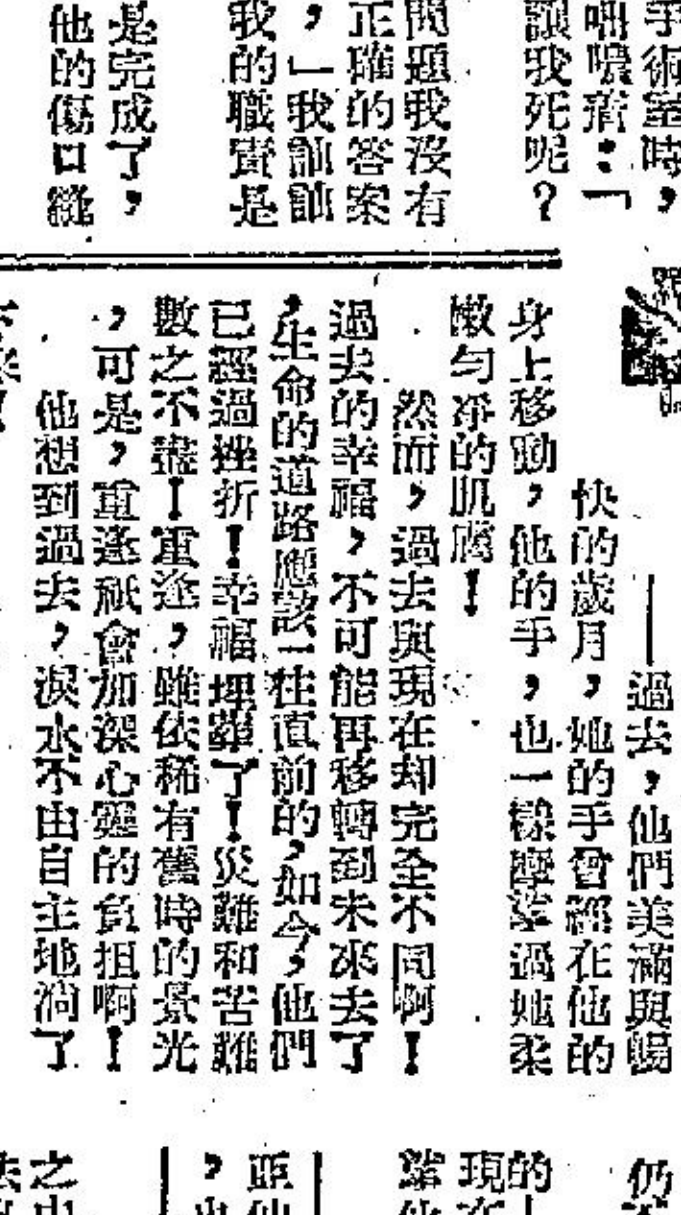 手術室時，
咽噥着：「
讓我死呢？
問題我沒有
正確的答案
，」我訕訕
我的職責是
是完成了，
他的傷口縫
——過去，他們美滿與暢
快的歲月，她的手曾經在他的
身上移動，他的手，也一樣摩挲過她柔
嫩勻淨的肌膚！
然而，過去與現在却完全不同啊！
過去的幸福，不可能再移轉到未來去了
，生命的道路應該一往直前的，如今，他們
已經過挫折！幸福埋葬了！災難和苦難
數之不盡！重逢，雖依稀有舊時的景光
，可是，重逢祇會加深心靈的負担啊！
他想到過去，淚水不由自主地淌了
仍
的
現在
之中